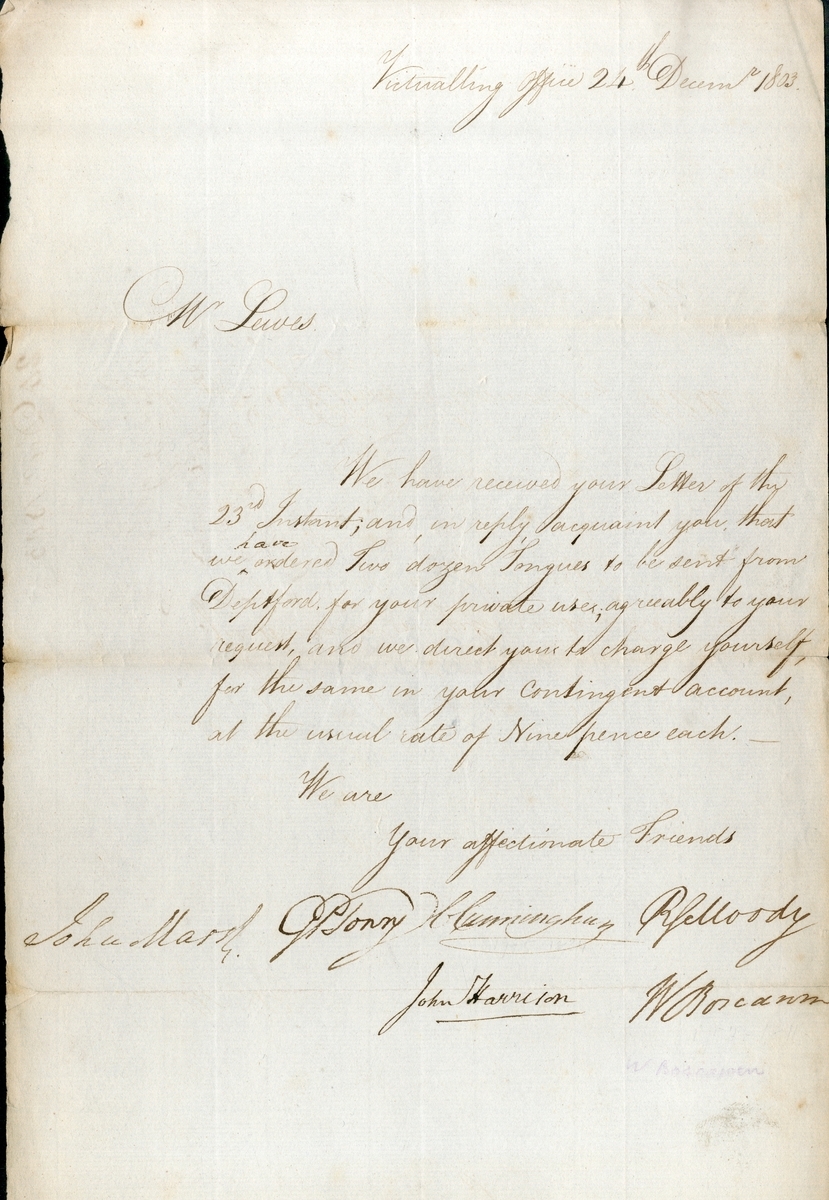 Victualling Office 24th Decemr 1803.
Mr Lewes.
We have received your Letter of the
23rd Instant; and, in reply, acquaint you, that
have
we ordered Two dozen Tongues to be sent from
Deptford, for your private use, agreeably to your
request, and we direct you to charge yourself,
for the same in your Contingent account,
at the usual rate of Nine pence each. —
We are
Your affectionate Friends
John Marsh. GPTowry Cunningham RSMoody
John Harrison W Boscawen
W Boscawen